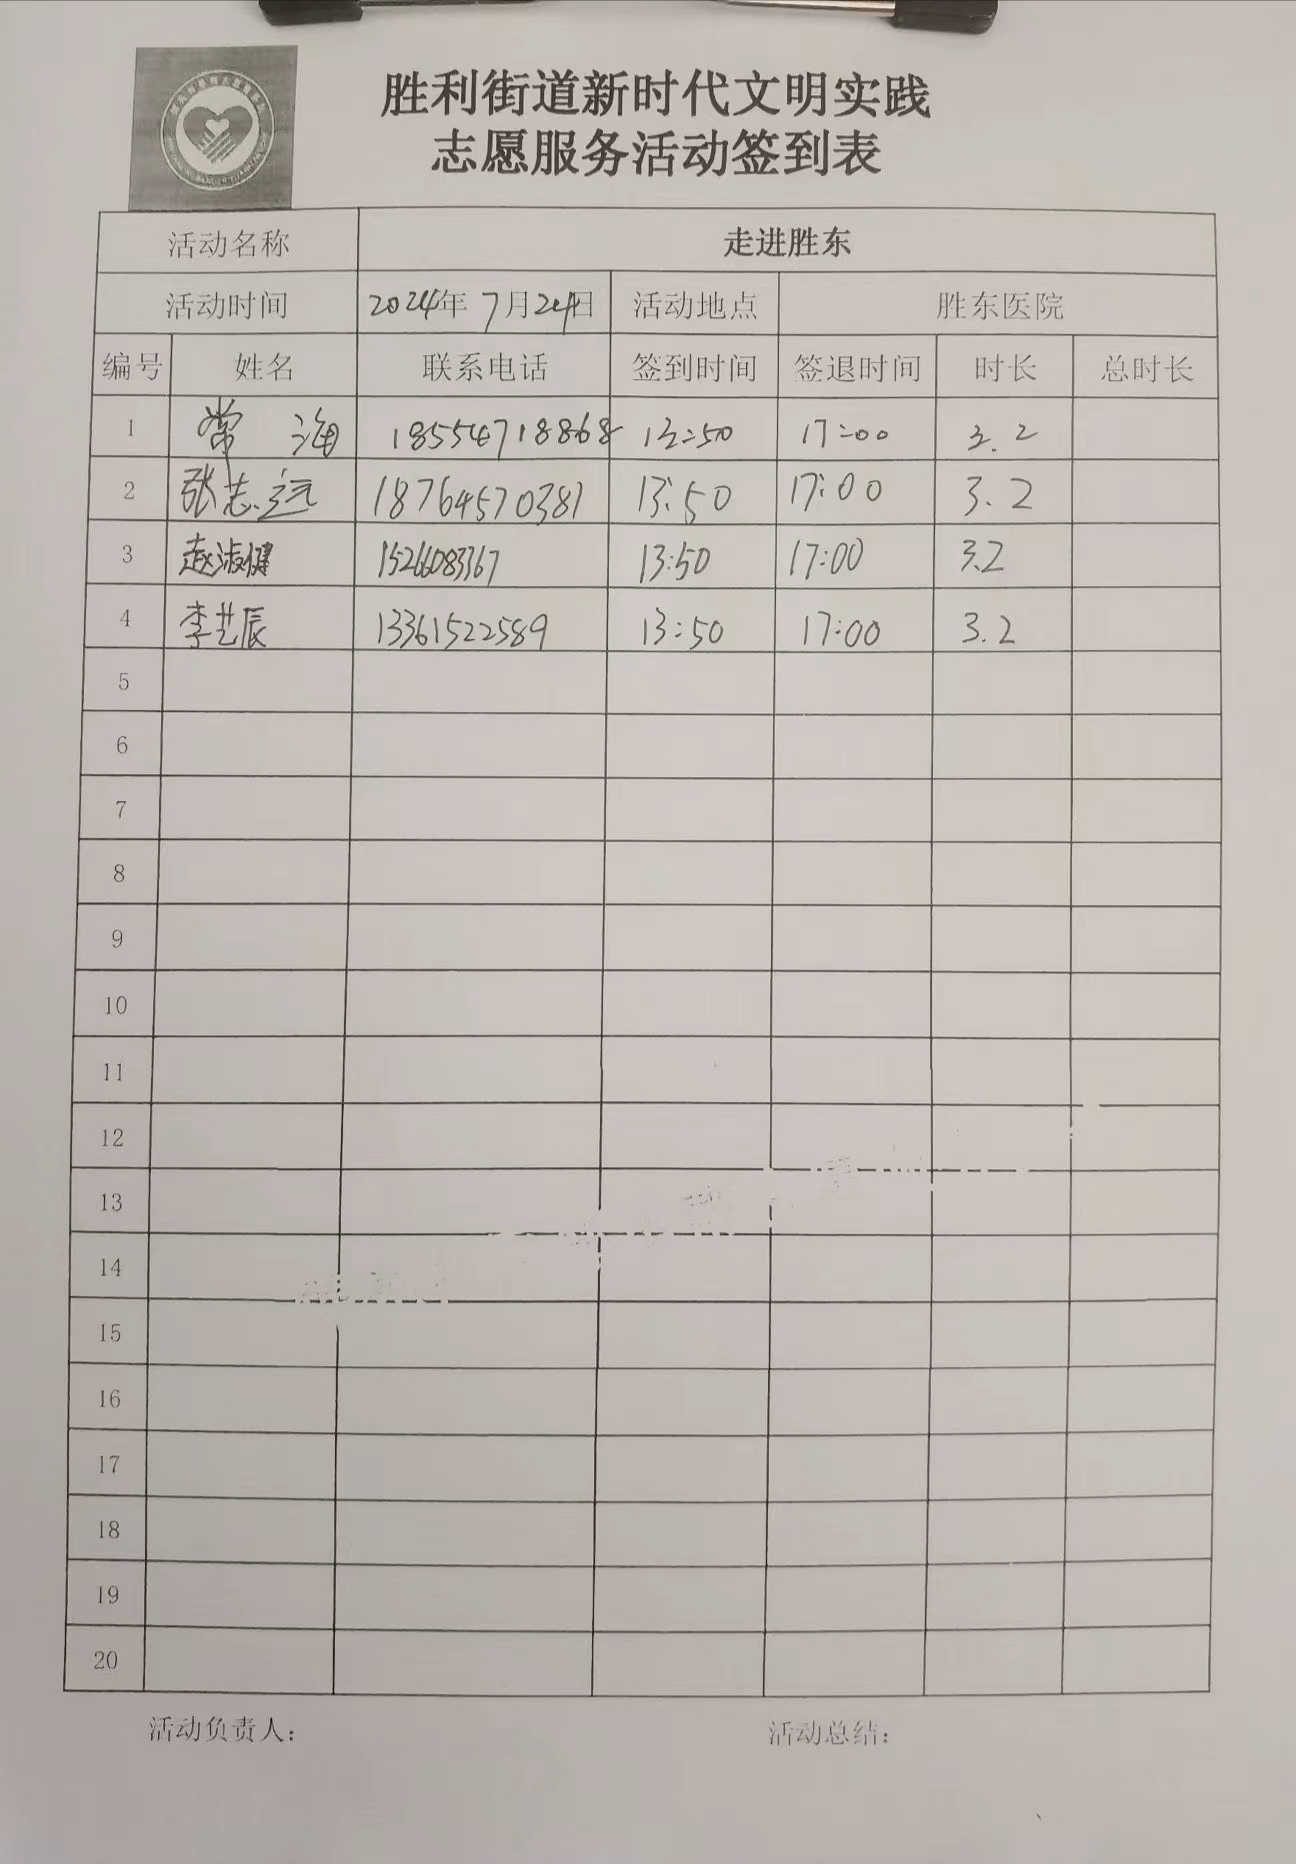 胜利街道新时代文明实践
志愿服务活动签到表
活动名称 走进胜东
活动时间 2024年 7月24日 活动地点 胜东医院
编号 姓名 联系电话 签到时间 签退时间 时长 总时长
1 常海 18554718868 13:50 17:00 3.2
2 张志远 18764570381 13:50 17:00 3.2
3 赵淑健 15266083367 13:50 17:00 3.2
4 李艺辰 13361522589 13:50 17:00 3.2
5
6
7
8
9
10
11
12
13
14
15
16
17
18
19
20
活动负责人: 活动总结: